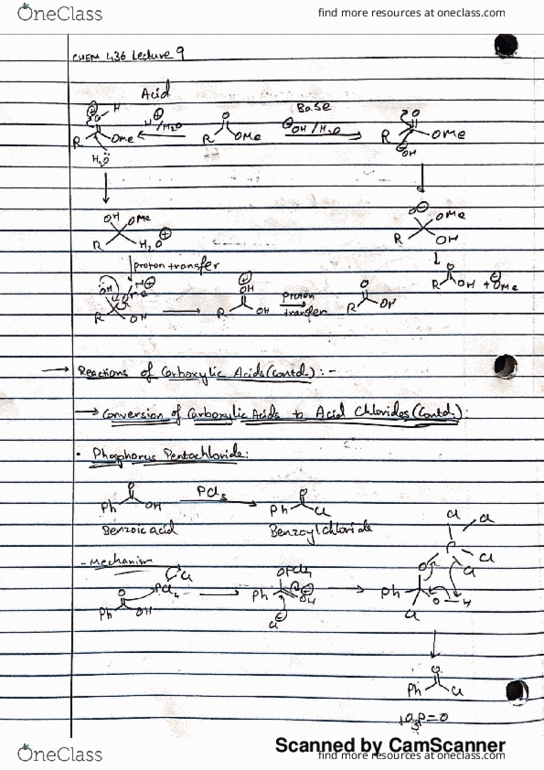 OneClass
find more resources at oneclass.com
CHEM 436 Lecture 9
Acid
Base
H⊕/H2O
⊖OH/H2O
R OMe
R OMe
R OMe
H2O
OH
OMe
R H2O⊕
O⊖
OMe
R OH
proton transfer
O
R OH + ⊖OMe
⊕OH
R OH
proton
transfer
O
R OH
→ Reactions of Carboxylic Acids (contd.) :-
→ Conversion of Carboxylic Acids to Acid Chlorides (Contd.):
• Phosphorus Pentachloride:
Ph OH
PCl5
Ph Cl
Benzoic acid
Benzoyl chloride
- Mechanism
Ph OH
PCl4
Cl
OPCl4
Ph
Cl⊖
Ph
Cl
O—H
Ph Cl
+Cl3P=O
Scanned by CamScanner
OneClass
find more resources at oneclass.com